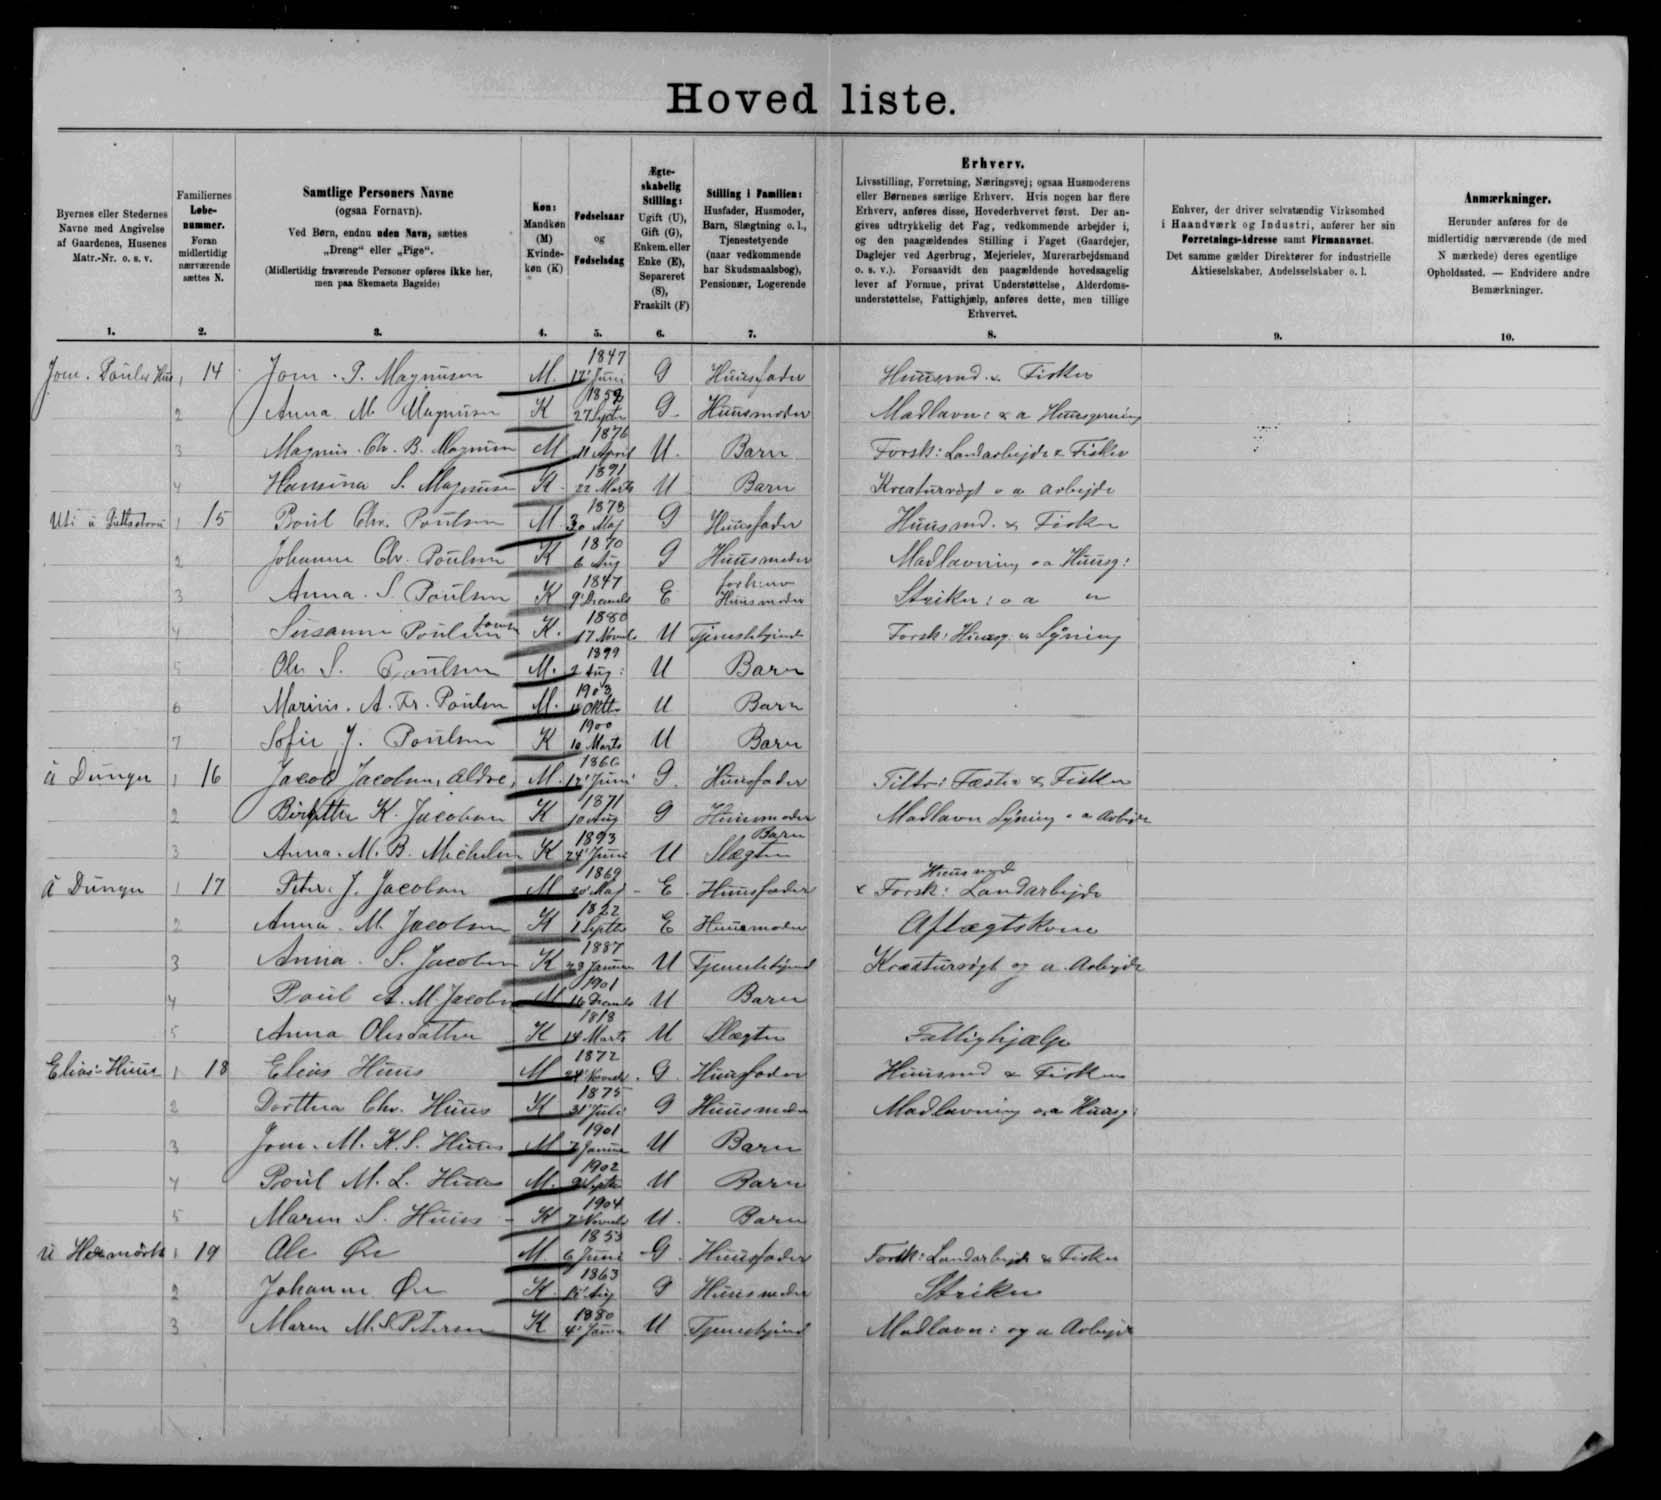 Hoved liste.
Byernes eller Stedernes Navne med Angivelse af Gaardenes, Husenes Matr.-Nr. o. s. v.
Familiernes Løbe-nummer. Foran midlertidig nærværende sættes N.
Samtlige Personers Navne
(ogsaa Fornavn).
Ved Børn, endnu uden Navn, sættes „Dreng“ eller „Pige“.
(Midlertidig fraværende Personer opføres ikke her, men paa Skemaets Bagside)
Køn: Mandkøn (M) Kvinde-køn (K)
Fødselsaar og Fødselsdag
Ægte-skabelig Stilling: Ugift (U), Gift (G), Enkem. eller Enke (E), Separeret (S), Fraskilt (F)
Stilling i Familien: Husfader, Husmoder, Barn, Slægtning o. l., Tjenestetyende (naar vedkommende har Skudsmaalsbog), Pensionær, Logerende
Erhverv.
Livsstilling, Forretning, Næringsvej; ogsaa Husmoderens eller Børnenes særlige Erhverv. Hvis nogen har flere Erhverv, anføres disse, Hovederhvervet først. Der angives udtrykkelig det Fag, vedkommende arbejder i, og den paagældendes Stilling i Faget (Gaardejer, Daglejer ved Agerbrug, Mejerielev, Murerarbejdsmand o. s. v.). Forsaavidt den paagældende hovedsagelig lever af Formue, privat Understøttelse, Alderdoms-understøttelse, Fattighjælp, anføres dette, men tillige Erhvervet.
Enhver, der driver selvstændig Virksomhed i Haandværk og Industri, anfører her sin Forretnings-Adresse samt Firmanavnet. Det samme gælder Direktører for industrielle Aktieselskaber, Andelsselskaber o. l.
Anmærkninger.
Herunder anføres for de midlertidig nærværende (de med N mærkede) deres egentlige Opholdssted. — Endvidere andre Bemærkninger.
1. 2. 3. 4. 5. 6. 7. 8. 9. 10.
1 14 P. Magnusen M. 1847 17' Juni G Huusfader Huusmd. & Fisker
2 Anna M. Magnusen K 27 Septr G. Huusmoder Madlavn: & a Huusgerning
3 Magnus. Chr. B. Magnusen M 1876 11 April U. Barn Forsk: Landarbejde & Fisker
4 Hansina S. Magnusen K. 1891 22 Marts U Barn Kreaturvogt o a arbejde
1 15 Poul Chr. Poulsen M. 1878 30 Maj G Huusfader Huusmd. & Fisker
2 Johanne Chr. Poulsen K 1870 6 Aug G Huusmoder Madlavning o a Huusg:
3 Anna. S. Poulsen K 1847 9' Decemb E forhenv Huusmoder Striker: o a
4 Susanne Poulsen K. 1880 17 Novmb U Tjenestetyende Forsk: Huusg. & Syning
5 Ole S. Poulsen M. 1899 2 Aug: U Barn
6 Marius. A. Fr. Poulsen M. 1903 U Barn
7 Sofie J. Poulsen K 1900 10 Marts U Barn
á Dungu 1 16 Jacob Jacobsen, ældre, M. 1866 12' Juni G. Huusfader Fæster & Fisker
2 Birgitte K. Jacobsen K 1871 10 Aug G Huusmoder Madlavn Syning o a Arbejde
3 Anna. M. B. Michelsen K 1893 24' Juni U Slægtn Barn
á Dungu 1 17 Peter. J. Jacobsen M 1869 20' Maj E. Huusfader Huusmd & Forsk: Landarbejde
2 Anna. M. Jacobsen K 1822 1 Septbr E Huusmoder Aftægtskone
3 Anna. S. Jacobsen K 1887 23 Januar U Tjenestetyend Kreaturvogt og a. Arbejde
4 Poul A. M. Jacobsen M 1901 16 Decemb U Barn
5 Anna Olesdatter K 1818 14 Marts U Slægtn Fattighjælp
Elias Huus 1 18 Elias Huus M 1872 24' Novmb. G. Huusfader Huusmd & Fisker
2 Dorthea Chr. Huus K 1875 31' Juli G Huusmoder Madlavning o a Huusg:
3 M. K. S. Huus M 1901 Januar U Barn
4 Poul M. L. Huus M. 1902 Septbr U Barn
5 Maren S. Huus K 1904 7' Novmb U. Barn
1 19 Ole Øre M. 1853 6 Juni G. Huusfader Forsk: Landarbejde & Fisker
2 Johanne Øre K. 1863 Aug G Huusmoder Striker
3 Maren M. S. Petersen K 1880 4' Januar U Tjenestetyend Madlavn: og a Arbejde